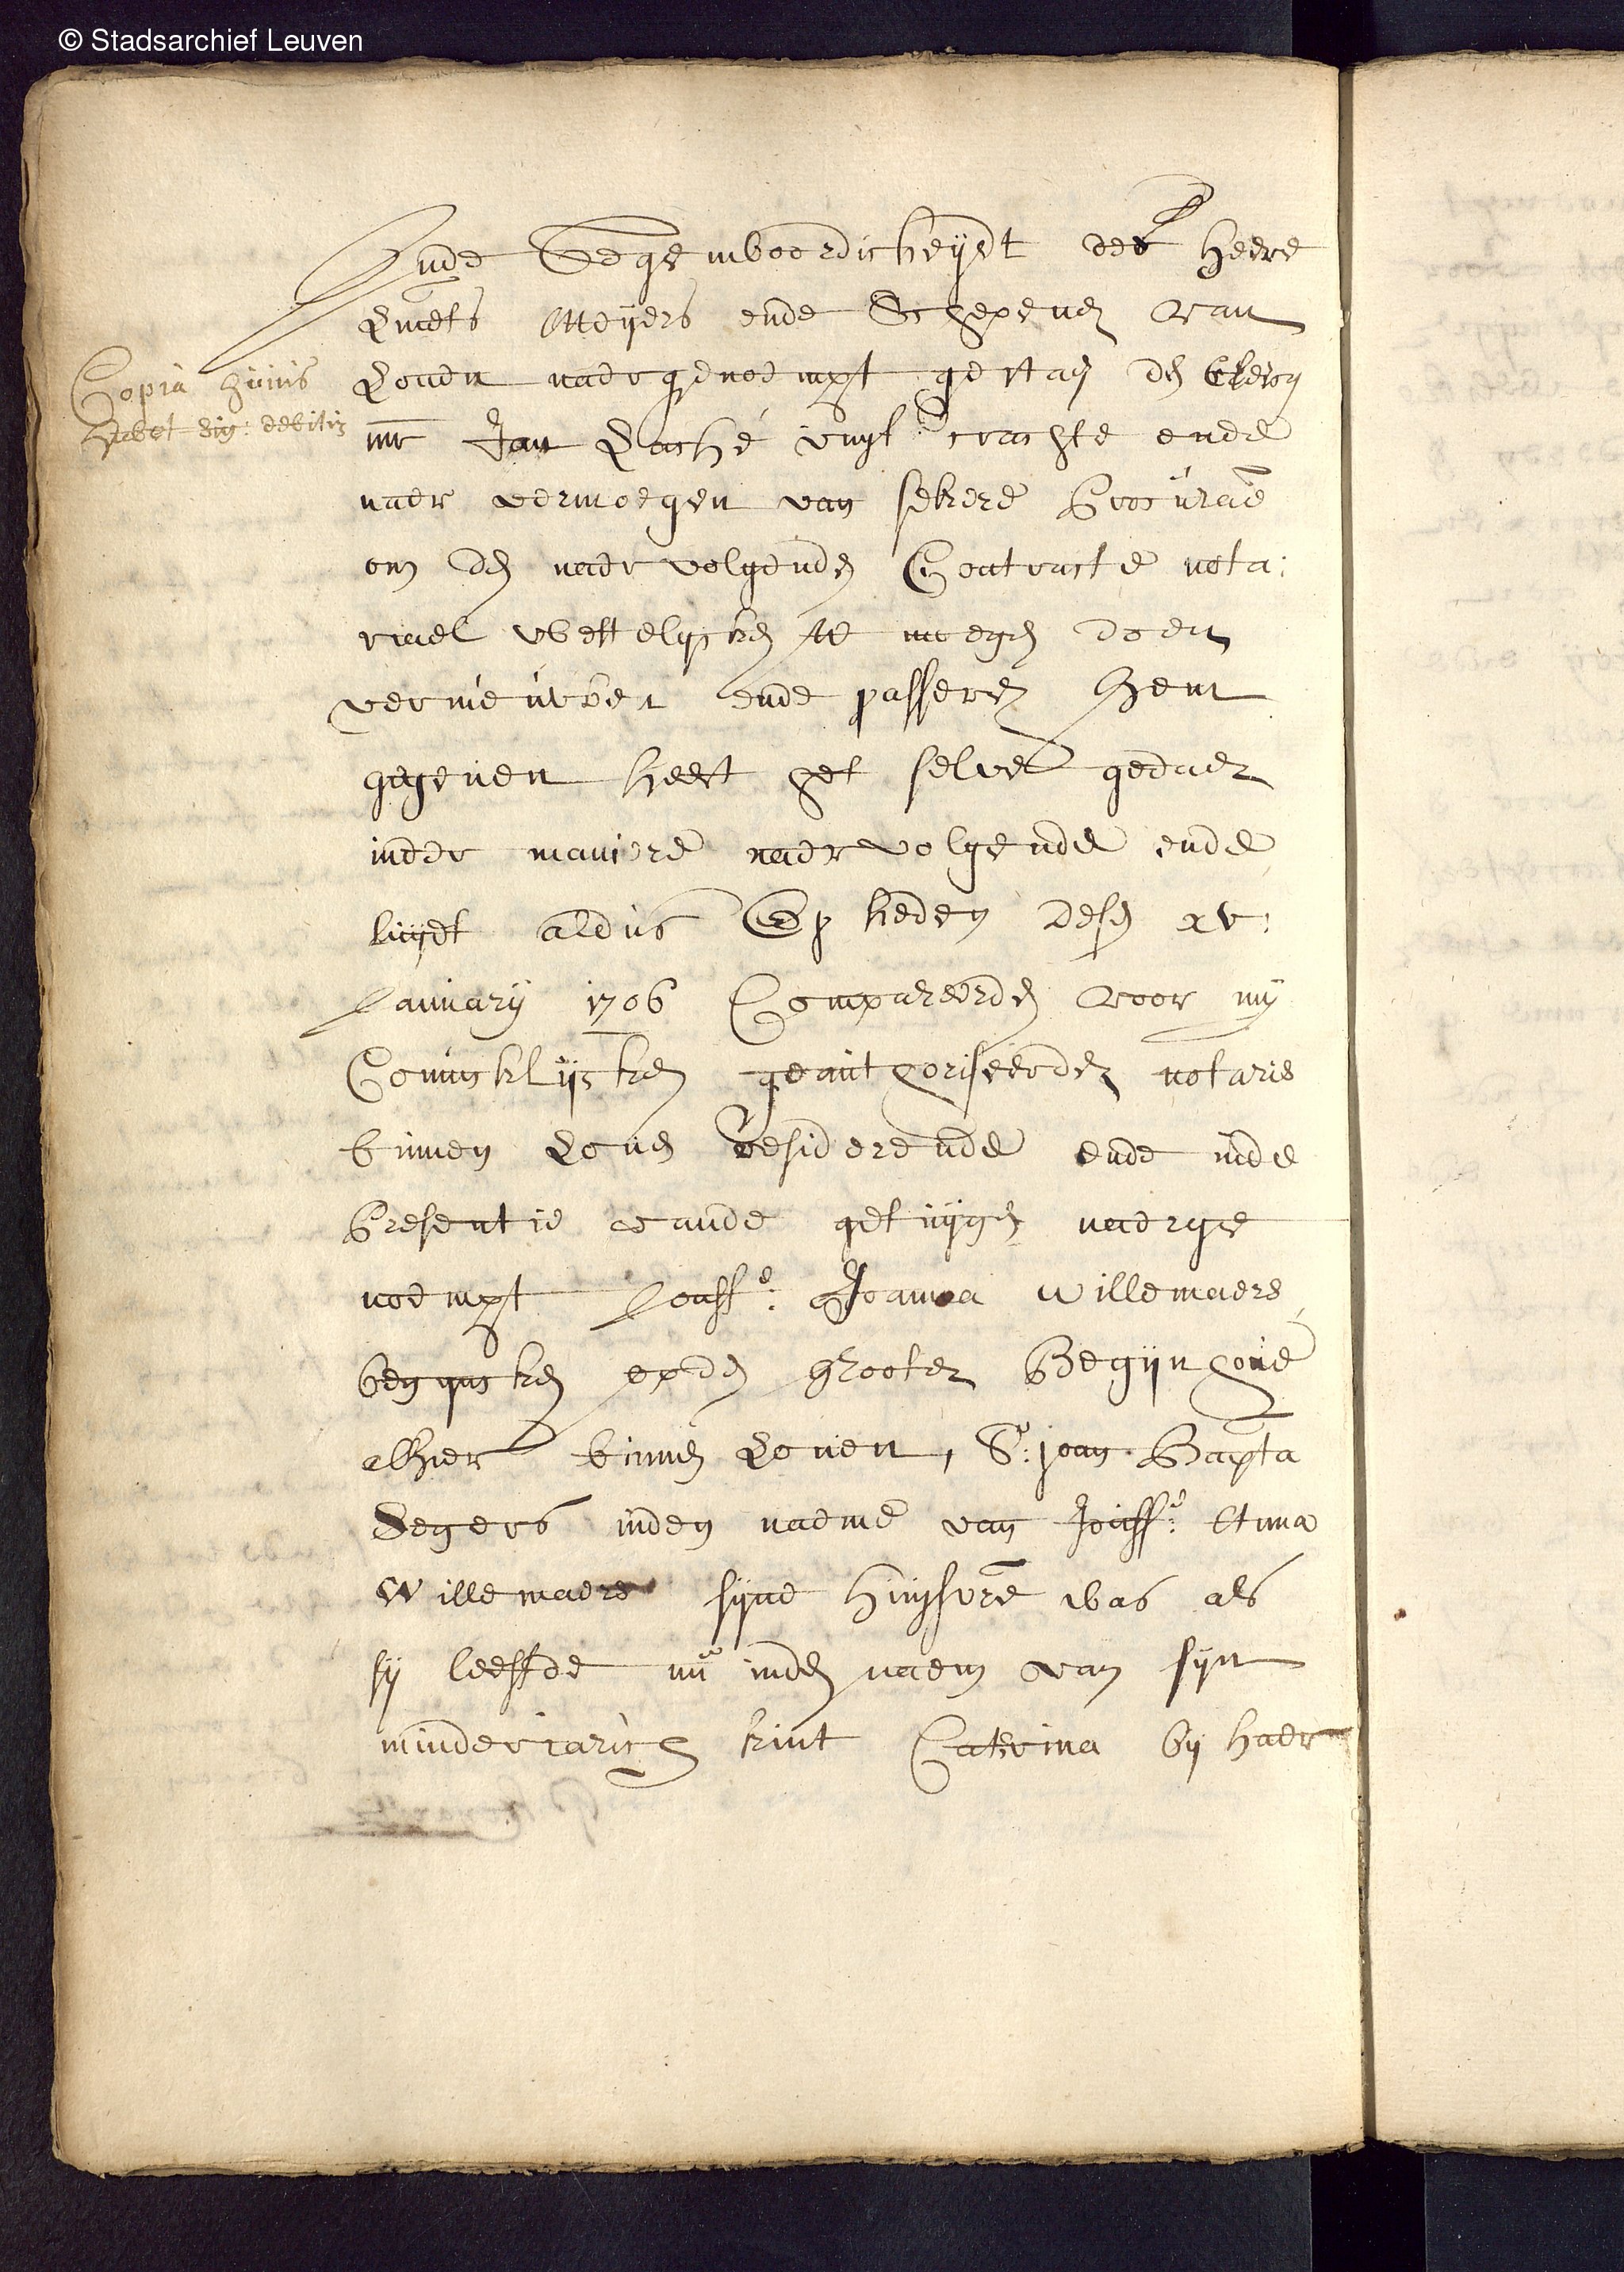 © Stadsarchief Leuven
Inde Tegenwoordicheijdt des heere
Lmets Meijers ende Schepenen van
Loven naergenoempt gestaen den Clercq
mr Jan Lasché vuyt crachte ende
naer vermoegen van sekere Procuraẽ
om den naervolgenden Contracte nota:
riael wettelycken te moegen doen
vernieuwen ende passeren hem
gegeven heeft het selve gedaen
inder maniere naervolgende ende
luydt aldus Op heden desen xv:
January 1706 Compareerden voor my
Coninckl͠ijcken geauthoriseerden notaris
binnen Loven residerende ende inde
presentie vande getuygen naerge
noempt Jouffe: Joanna willemaers
begijncken opden grooten Begijnhove
alhier binnen Loven, Sr: joan Bapta
Segers inden naeme van Jouffe: Anna
Willemaers sijne huysvrẽ was als
sij leeffde nu inden naem van sijn
minderiarich kint Catrina bij haer
Copia huius
habet sig: debitis